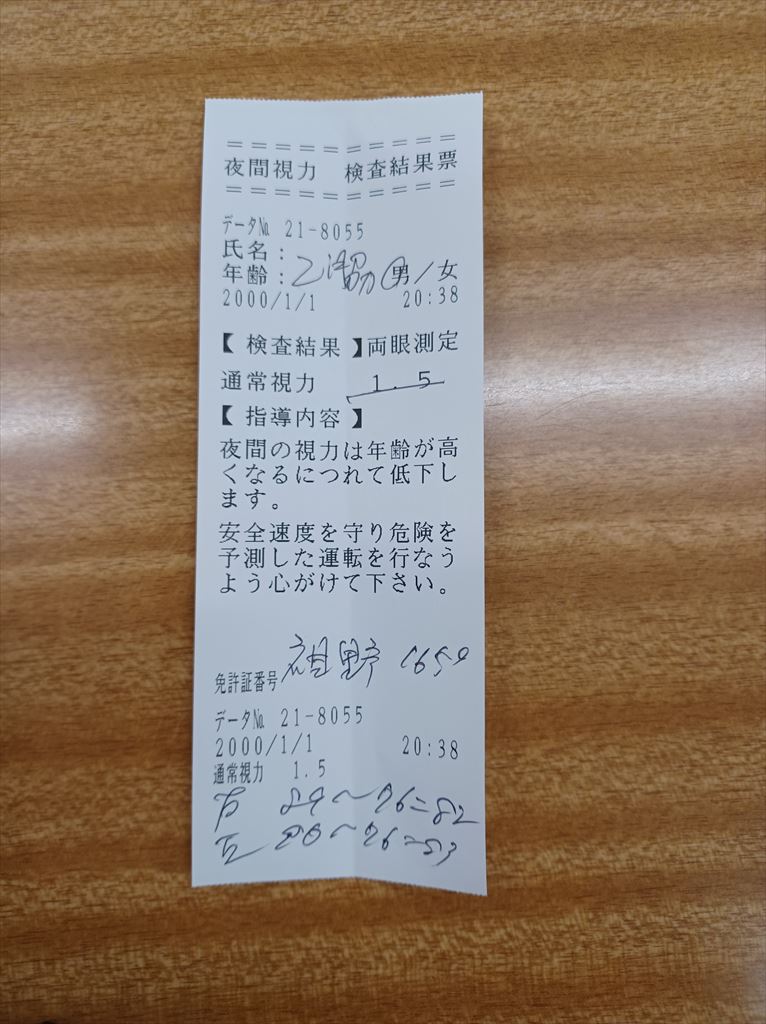 ====================
夜間視力 検査結果票
====================
データ№ 21-8055
氏名:
年齢: 男/女
2000/1/1 20:38
【 検査結果 】両眼測定
通常視力 1.5
【 指導内容 】
夜間の視力は年齢が高
くなるにつれて低下し
ます。
安全速度を守り危険を
予測した運転を行なう
よう心がけて下さい。
免許証番号
データ№ 21-8055
2000/1/1 20:38
通常視力 1.5
右 89~76=82
左 90~76=83